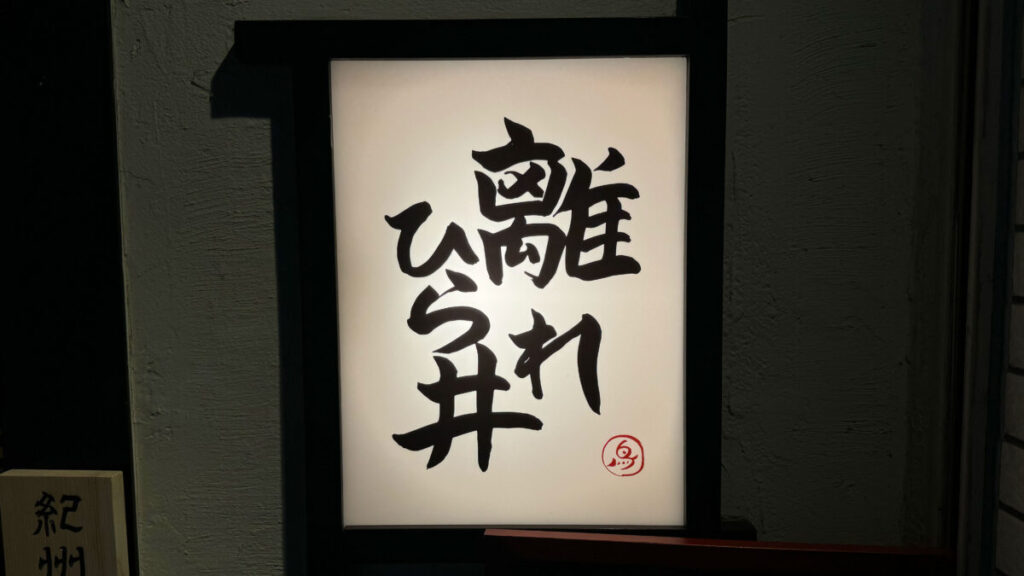 離れ
ひら井
鳥
紀州